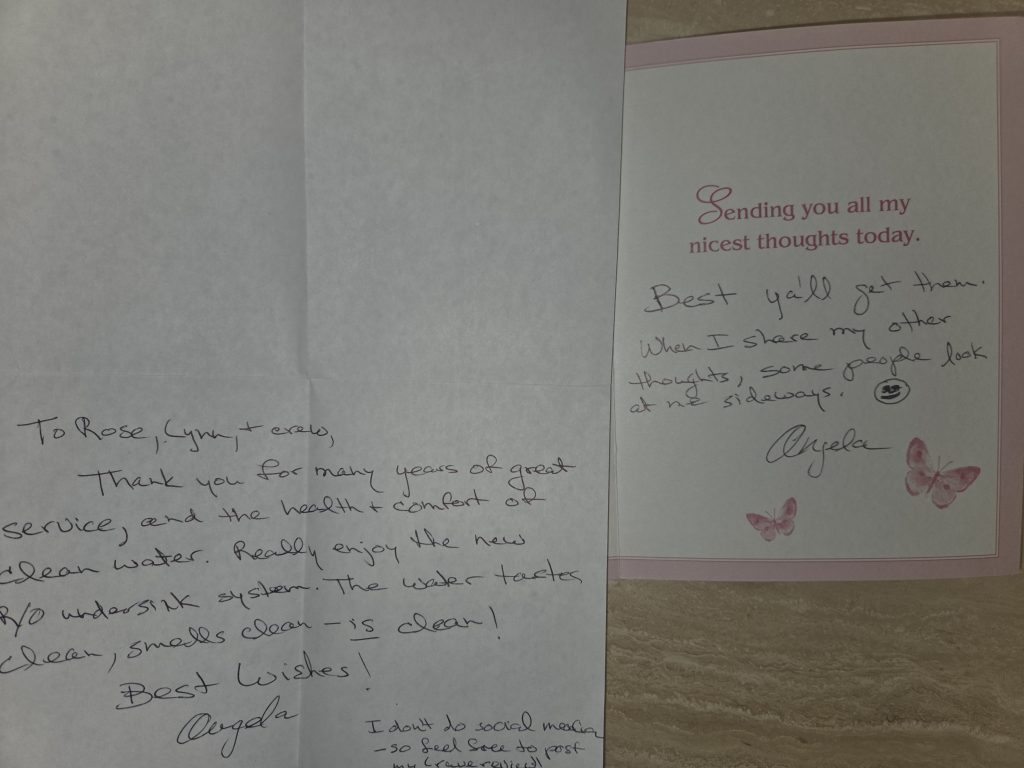 To Rose, Lynn, + crew,
Thank you for many years of great
service, and the health + comfort of
clean water. Really enjoy the new
R/O undersink system. The water tastes
clean, smells clean – is clean!
Best Wishes!
Angela
I don't do social media
– so feel free to post
my (rave review)!
Sending you all my
nicest thoughts today.
Best ya'll get them.
When I share my other
thoughts, some people look
at me sideways.
Angela